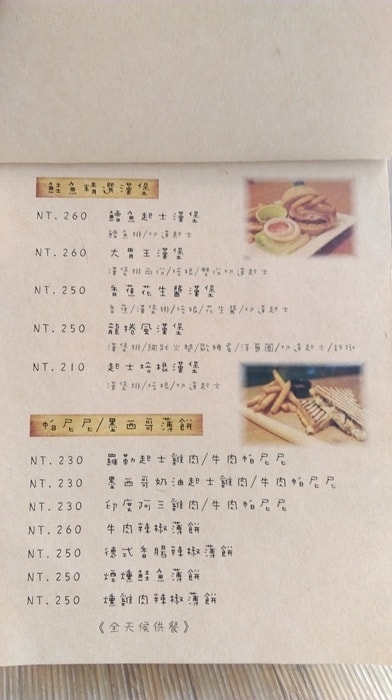 鮭魚精選漢堡
NT.260 鱈魚起士漢堡
鱈魚排/切達起士
NT.260 大胃王漢堡
漢堡排兩份/培根/雙份切達起士
NT.250 香蕉花生醬漢堡
香蕉/漢堡排/培根/花生醬/切達起士
NT.250 龍捲風漢堡
漢堡排/碳烤火腿/歐姆蛋/洋蔥圈/切達起士/辣椒
NT.210 起士培根漢堡
漢堡排/培根/切達起士
帕尼尼/墨西哥薄餅
NT.230 羅勒起士雞肉/牛肉帕尼尼
NT.230 墨西哥奶油起士雞肉/牛肉帕尼尼
NT.230 印度阿三雞肉/牛肉帕尼尼
NT.260 牛肉辣椒薄餅
NT.250 德式香腸辣椒薄餅
NT.250 煙燻鮭魚薄餅
NT.250 燻雞肉辣椒薄餅
《全天候供餐》